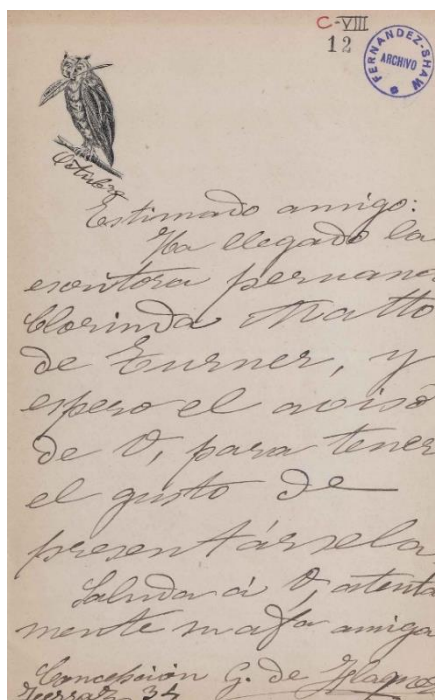 C-VIII
12
FERNANDEZ-SHAW
ARCHIVO
Octubre
Estimado amigo:
Ha llegado la
escritora peruana
Clorinda Matto
de Turner, y
espero el aviso
de V, para tener
el gusto de
presentársela
Saluda á V, atenta
mente su afa amiga
Concepción G. de Flaquer
Ferraz 34